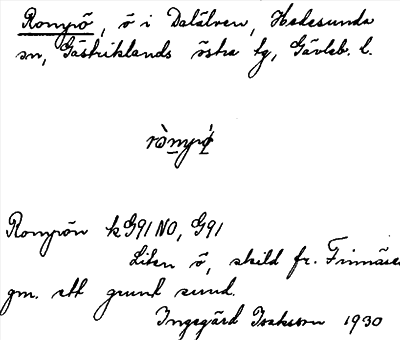 Romprö, ö i Dalälven, Hedesunda
sn, Gästriklands östra tg, Gävleb. l.
Romprön kG91NO, G91
Liten ö, skild fr.
gm. ett grunt sund.
Ingegärd Isaksson 1930